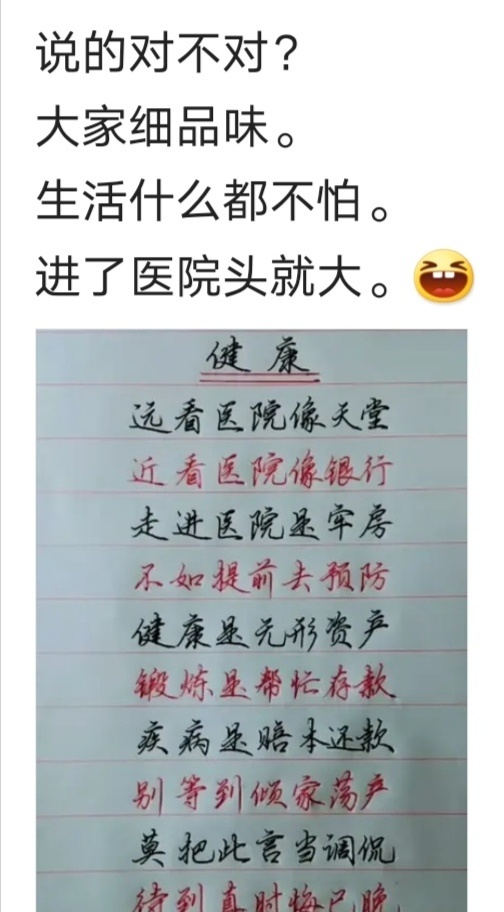 说的对不对？
大家细品味。
生活什么都不怕。
进了医院头就大。
健康
远看医院像天堂
近看医院像银行
走进医院是牢房
不如提前去预防
健康是无形资产
锻炼是帮忙存款
疾病是赔本还款
别等到倾家荡产
莫把此言当调侃
待到真时悔已晚